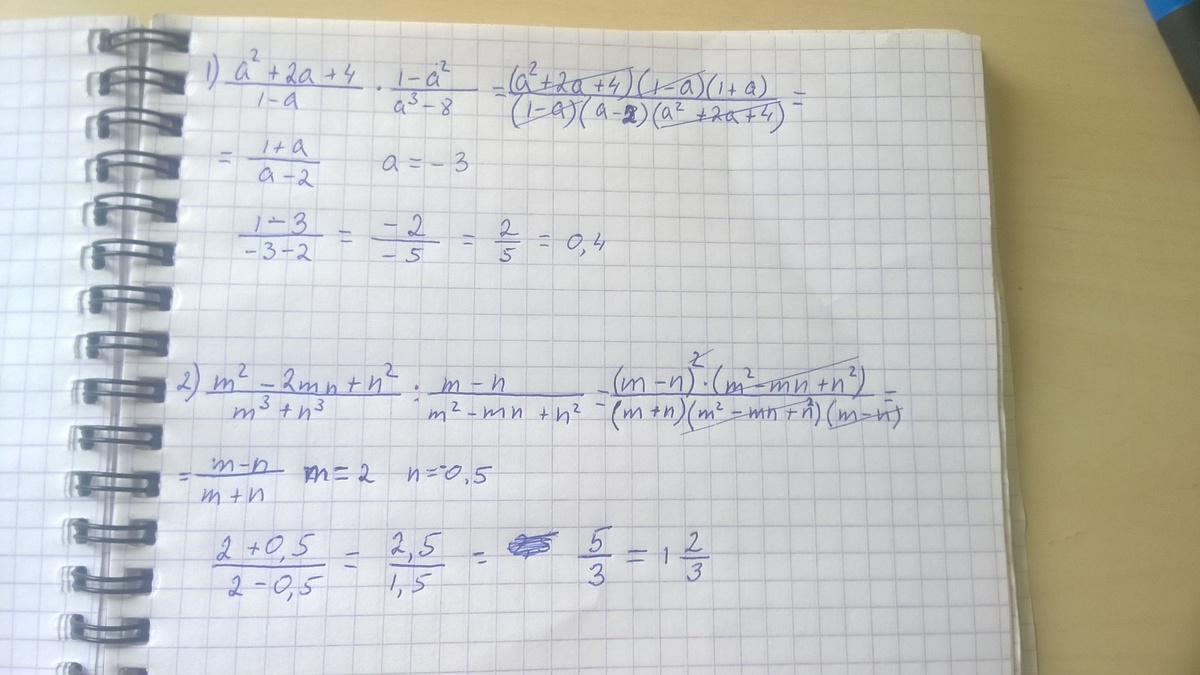 1) (a² + 2a + 4)/(1 - a) · (1 - a²)/(a³ - 8) = ((a² + 2a + 4)(1 - a)(1 + a))/((1 - a)(a - 2)(a² + 2a + 4)) =
= (1 + a)/(a - 2) a = - 3
(1 - 3)/(-3 - 2) = (-2)/(-5) = 2/5 = 0,4
2) (m² - 2mn + n²)/(m³ + n³) : (m - n)/(m² - mn + n²) = ((m - n)² · (m² - mn + n²))/((m + n)(m² - mn + n²)(m - n)) =
= (m - n)/(m + n) m = 2 n = -0,5
(2 + 0,5)/(2 - 0,5) = 2,5/1,5 = 5/3 = 1 2/3